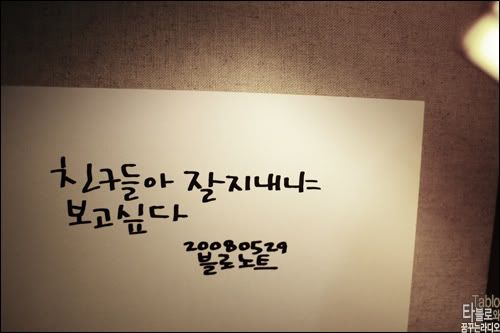 친구들아 잘지내냐
보고싶다
20080529
블로노트
Tablo
타블로와
꿈꾸는라디오